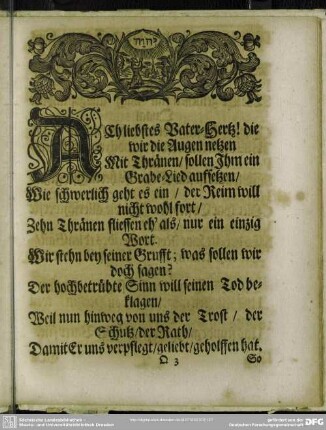 יהוה
ACh liebstes Vater-Hertz! die
wir die Augen netzen
Mit Thränen/ sollen Ihm ein
Grabe-Lied auffsetzen/
Wie schwerlich geht es ein / der Reim will
nicht wohl fort/
Zehn Thränen fliessen eh' als/ nur ein einzig
Wort.
Wir stehn bey seiner Grufft; was sollen wir
doch sagen?
Der hochbetrübte Sinn will seinen Tod be-
klagen/
Weil nun hinweg von uns der Trost / der
Schutz/der Rath/
Damit Er uns verpflegt/geliebt/geholffen hat.
D 3
So